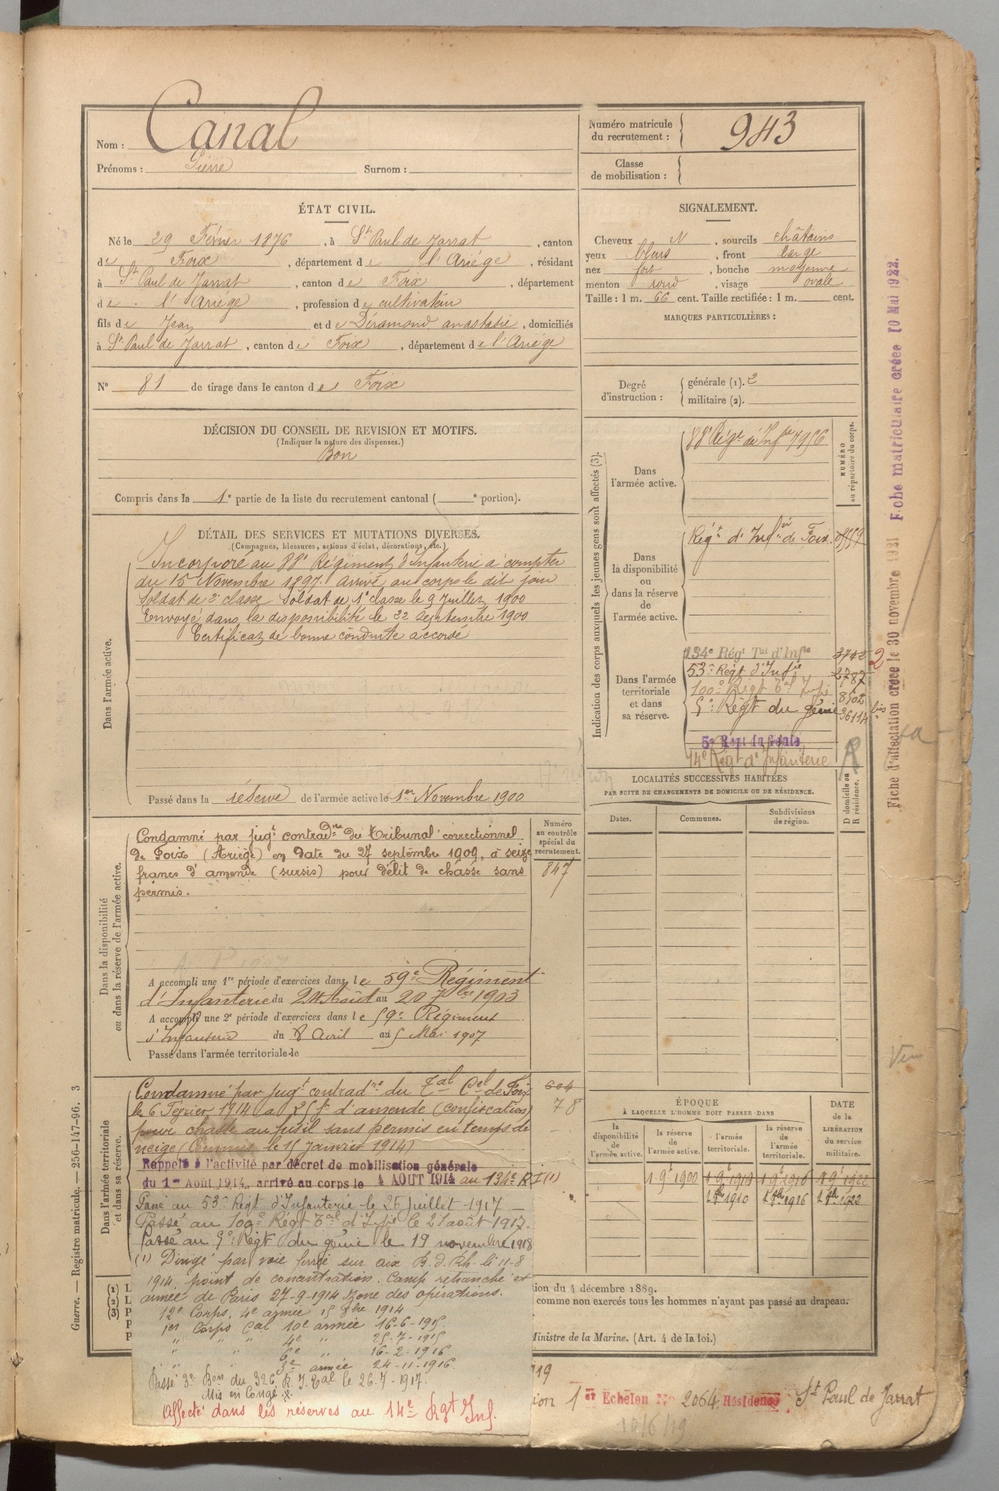 Nom : Canal
Prénoms : Pierre Surnom :
Numéro matricule
du recrutement : 943
Classe
de mobilisation :
ÉTAT CIVIL.
Né le 29 Février 1876, à St Paul de Jarrat, canton
de Foix, département de l'Ariége, résidant
à St Paul de Jarrat, canton de Foix, département
de l'Ariége, profession de cultivateur
fils de Jean et de Déramond anastasie, domiciliés
à St Paul de Jarrat, canton de Foix, département de l'Ariége
N° 81 de tirage dans le canton de Foix
SIGNALEMENT.
Cheveux N, sourcils châtains
yeux bleus, front large
nez fort, bouche moyenne
menton rond, visage ovale
Taille : 1 m. 66 cent. Taille rectifiée : 1 m. cent.
MARQUES PARTICULIÈRES :
Degré
d'instruction :
générale (1). 2
militaire (2).
DÉCISION DU CONSEIL DE REVISION ET MOTIFS.
(Indiquer la nature des dispenses.)
Bon
Compris dans la 1e partie de la liste du recrutement cantonal ( e portion).
DÉTAIL DES SERVICES ET MUTATIONS DIVERSES.
(Campagnes, blessures, actions d'éclat, décorations, etc.)
Dans l'armée active.
Incorporé au 88e Régiment d'Infanterie à compter
du 15 Novembre 1897 arrivé au corps le dit jour
Soldat de 2e classe. Soldat de 1e classe le 9 Juillet 1900
Envoyé dans la disponibilité le 22 Septembre 1900
Certificat de bonne conduite accordé
Passé dans la réserve de l'armée active le 1er Novembre 1900
Indication des corps auxquels les jeunes gens sont affectés (3).
Dans
l'armée active.
88e Régt d'Infie 7956
NUMÉRO
au répertoire du corps.
Dans
la disponibilité
ou
dans la réserve
de
l'armée active.
Régt d'Infie de Foix
Dans l'armée
territoriale
et dans
sa réserve.
134e Régt Tal d'Infie 3742
53e Régt d'Infie 2787
100e Régt Tal Infie 8902
5e Régt du génie 36114 bis
5e Régt du Génie
14e Régt d'Infanterie
LOCALITÉS SUCCESSIVES HABITÉES
PAR SUITE DE CHANGEMENTS DE DOMICILE OU DE RÉSIDENCE.
Dates. Communes. Subdivisions
de région.
D domicile ou
R résidence.
R
Dans la disponibilité
ou dans la réserve de l'armée active.
Numéro
au contrôle
spécial du
recrutement.
847
Condamné par jugt contradre du Tribunal correctionnel
de Foix (Ariège) en date du 27 septembre 1909, à seize
francs d'amende (sursis) pour délit de chasse sans
permis.
A accompli une 1re période d'exercices dans le 59e Régiment
d'Infanterie du 24 Août au 20 7bre 1903
A accompli une 2e période d'exercices dans le 59e Régiment
d'Infanterie du 8 Avril au 5 Mai 1907
Passé dans l'armée territoriale le
Dans l'armée territoriale
et dans sa réserve.
604
78
Condamné par jugt contradre du Tal Cel de Foix
le 6 Février 1914 à 25 f d'amende (confiscation)
pour chasse au fusil sans permis en temps de
neige (Commis le 15 janvier 1914)
Rappelé à l'activité par décret de mobilisation générale
du 1er Août 1914, arrivé au corps le 4 AOUT 1914 au 134e R I (1)
Passé au 53e Régt d'Infanterie le 25 juillet 1917
Passé au 100e Régt Tal d'Infie le 21 août 1917.
Passé au 5e Régt du génie le 19 novembre 1918
(1) Dirigé par voie ferrée sur aix B.d.Rh. le 11-8
1914, point de concentration. Camp retranché et
armée de Paris 27-9-1914 zone des opérations.
12e Corps, 4e armée 15 8bre 1914
1er Corps Cal 10e armée 16-6-1915
" " " 4e " 25-7-1915
" " " 6e " 16-2-1916
" " 3e armée 24-11-1916
Passé 3e Bon du 326 R.I.Tal le 26-7-1917.
Mis en Congé
Affecté dans les réserves au 14e Rgt Inf.
ÉPOQUE
À LAQUELLE L'HOMME DOIT PASSER DANS
la
disponibilité
de
l'armée active.
la réserve
de
l'armée active.
l'armée
territoriale.
la réserve
de
l'armée
territoriale.
DATE
de la
LIBÉRATION
du service
militaire.
1 9e 1900 1 9e 1910 1 9e 1916 1 9e 1922
1 8bre 1910 1 8bre 1916 1 8bre 1922
ion du 4 décembre 1889.
comme non exercés tous les hommes n'ayant pas passé au drapeau.
Ministre de la Marine. (Art. 4 de la loi.)
ion 1er Echelon No 2064 Résidence St Paul de Jarrat
10/6/19
Guerre. — Registre matricule. — 256-147-96. 3
Fiche d'affectation créée le 30 novembre 1921 Fiche matriculaire créée 10 Mai 1922.